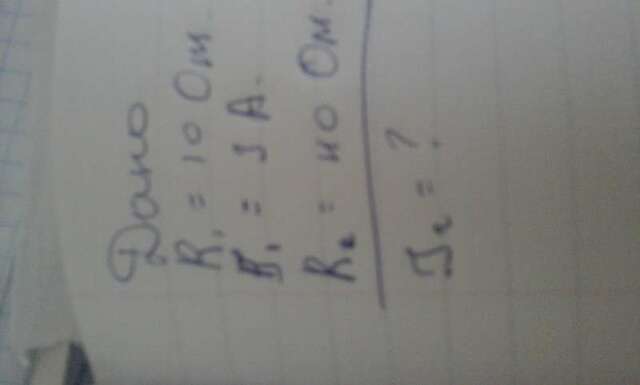 Дано
R₁ = 10 Ом.
I₁ = 1 А.
R₂ = 40 Ом.
I₂ = ?